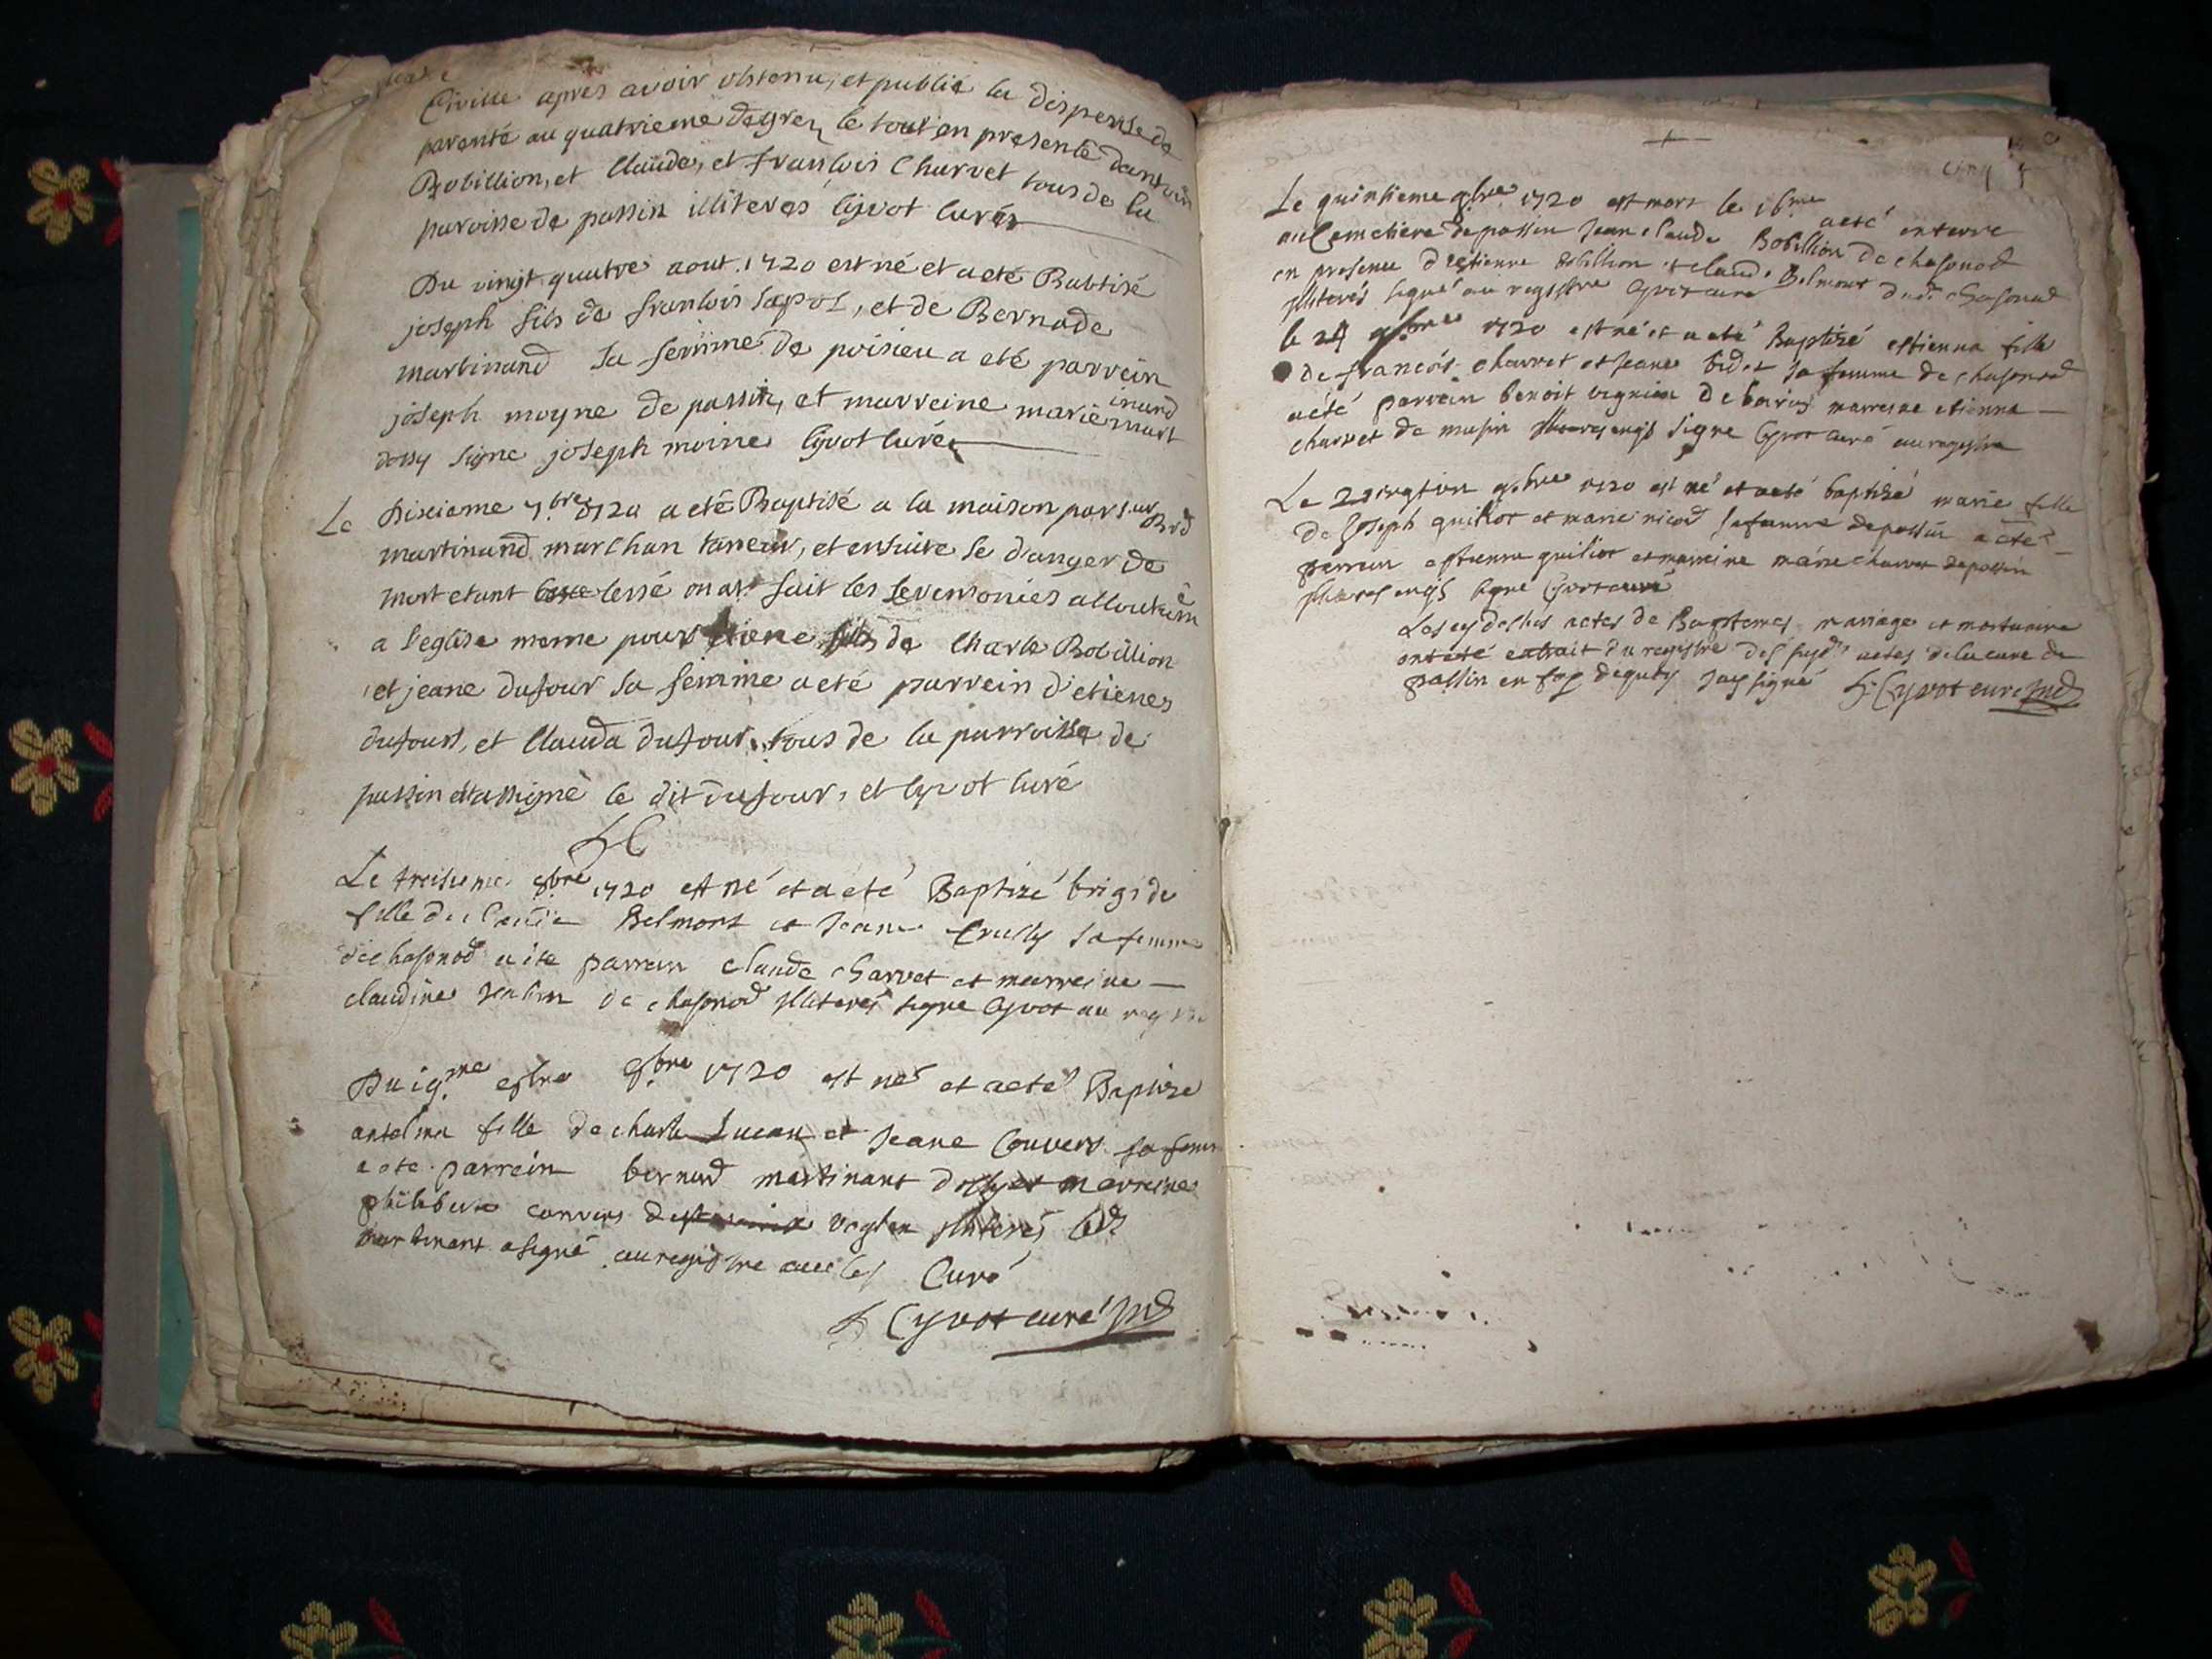 Civille apres avoir obstenu, et publié la dispense de
parenté au quatrieme degrez le tout en presence dantoin
Robillion, et Claude, et franlois Charvet tous de la
paroisse de passin illiterés Cyvot Curéz
Du vingt quatre aout 1720 est né et a eté Babtisé
joseph fils de franlois sapoz, et de Bernade
martinand sa femme de poisieu a eté parrein
joseph moyne de passin, et marreine marie mart
inand
dossy signe joseph moine Cyvot Curéz
Le Disieme 7.bre 1720 a eté Baptisé a la maison par sieur Brd
martinand marchan taneur, et ensuite le danger de
mort etant cessé on at fait les seremonies alloutumé
a l'eglise meme pour etiene fils de Charle Robillion
et jeane dufour sa femme a eté parrein d'etienes
dufour, et Clauda dufour tous de la parroisse de
passin et assigné le dit dufour, et Cyvot Curé
Le treisieme 8bre 1720 est né et a eté Baptizé brigide
fille de Belmont et Jeane sa femme
de chasonod a ete parrein claude charvet et marreine
claudine de chasonod illiterés signe Cyvot au reg
Du 19.me 8bre 1720 est né et a eté Baptize
antelma fille de charle Lucan et Jeane Convers sa fem
a ete parrein bernard martinant dossy et marreine
philiberte convers de voglan illiterés led
martinant a signé au registre avec les Curé
Cyvot curé
cinq 5
Le quinsieme 9bre 1720 est mort le 16me a eté enterre
au Cemetiere de passin Jean claude Robillion de chasonod
en presence d'estienne Robillion et claude Belmont dud. chasonod
illiterés signé au registre Cyvot curé
le 24 9bre 1720 est né et a eté Baptizé estienna fille
de francois charvet et Jeane sa femme de chasonod
a été parrein benoit marreine etienna
charvet de musin signe Cyvot curé au registre
Le 29 9.bre 1720 est né et a eté baptizé marie fille
de Joseph quillot et marie nicod sa femme de passin a ete
parrein estienne quillot et marreine marie charvet de passin
signe Cyvot curé
Les cy dessus actes de Baptemes mariage et mortuaire
ont eté extrait du registre des susd. actes de la cure de
passin en foy dequoy jay signé Cyvot curé